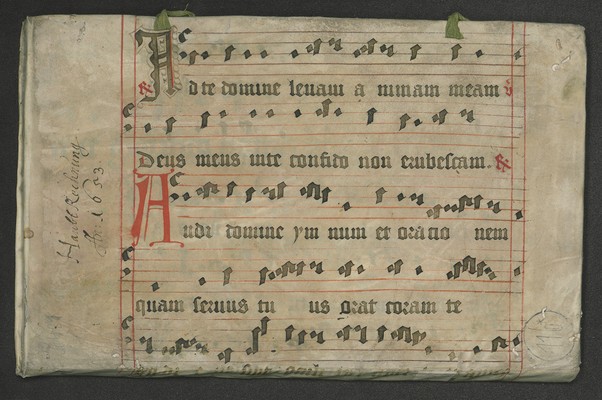 Ad te domine levavi a nimam meam
Deus meus inte confido non erubescam.
Audi domine ym num et oratio nem
quam servus tu us orat coram te
Haubt Rechnung
1653